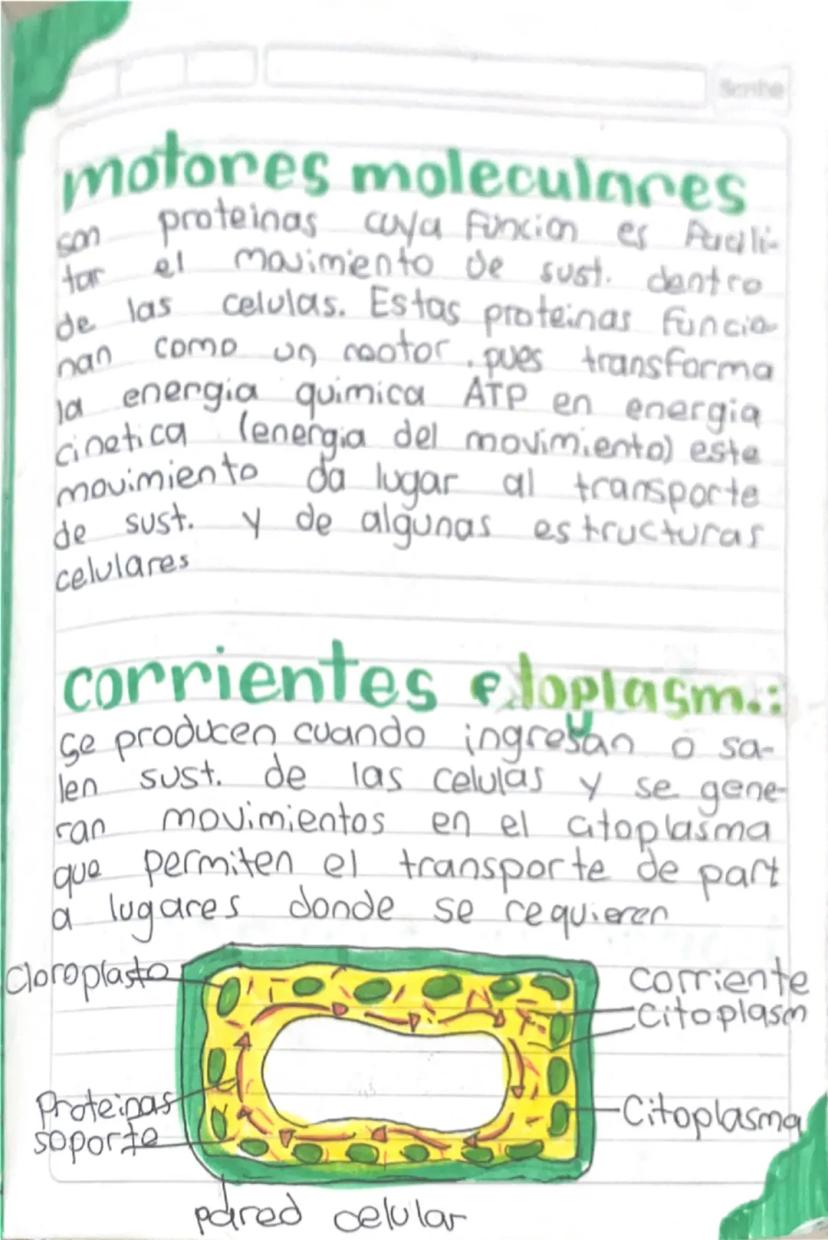 Scribe
motores moleculares
son proteinas cuya funcion es facili-
tar el movimiento de sust. dentro
de las celulas. Estas proteinas funcio-
nan como un motor, pues transforma
la energia quimica ATP en energia
cinetica (energia del movimiento) este
movimiento da lugar al transporte
de sust. y de algunas estructuras
celulares
corrientes
Se producen cuando ingresan o sa-
len sust. de las celulas y se gene-
ran movimientos en el citoplasma
que permiten el transporte de part
a lugares donde se requieren
cloroplasto
corriente
citoplasm
Proteinas
soporte
Citoplasma
pared celular